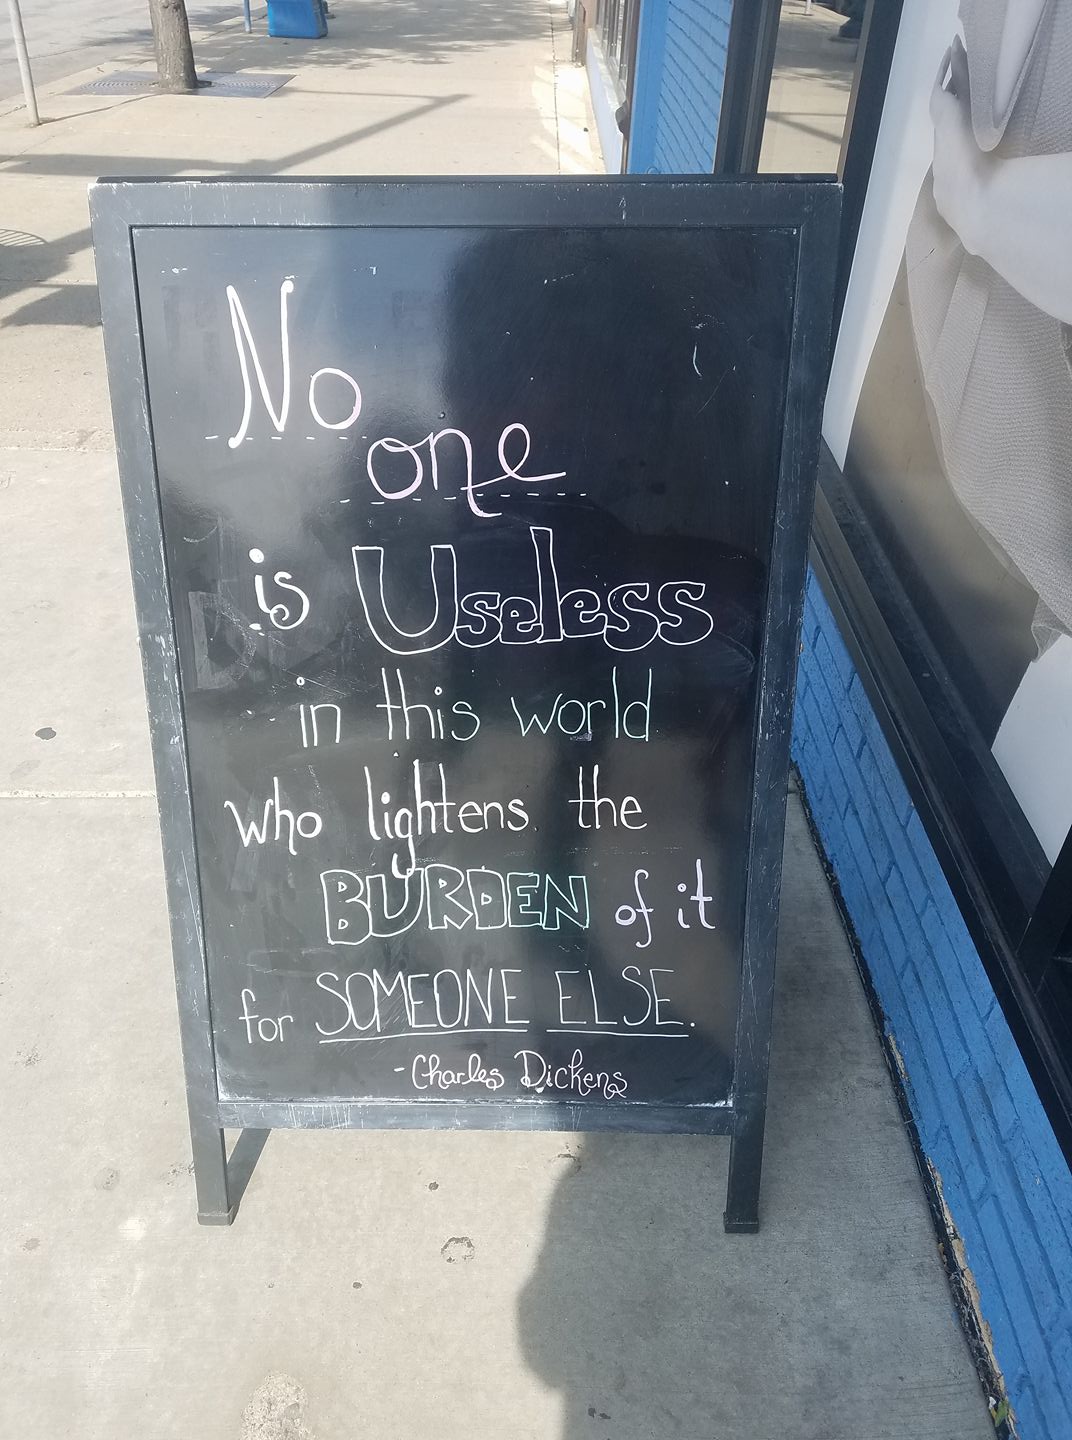 No
one
is Useless
in this world
who lightens the
BURDEN of it
for SOMEONE ELSE.
-Charles Dickens